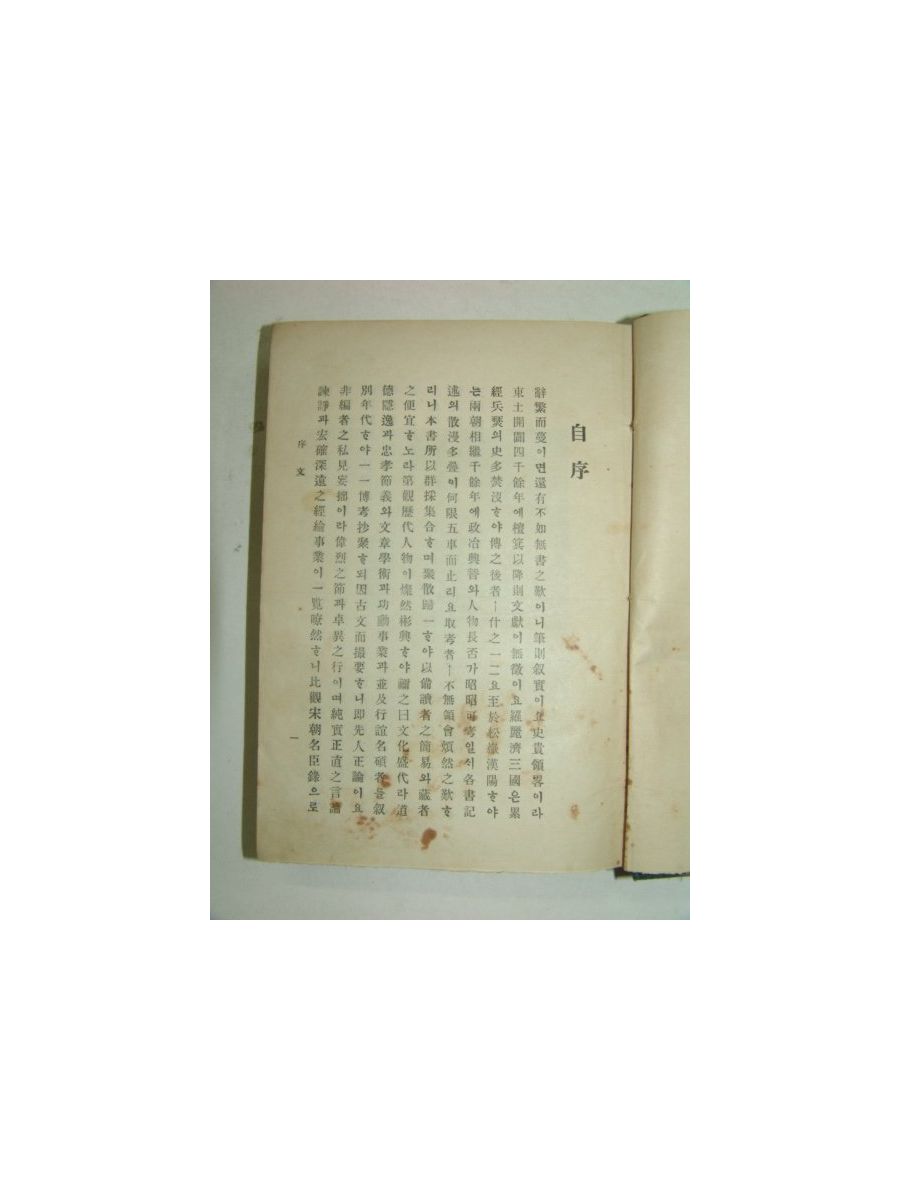 自序
辭繁而蔓이면還有不如無書之歎이니筆則叙實이요史貴領畧이라
東土開闢四千餘年에檀箕以降則文獻이無徵이요羅麗濟三國은累
經兵燹의史多焚沒ᄒᆞ야傳之後者ㅣ什之一二요至於松嶽漢陽ᄒᆞ야
는兩朝相繼千餘年에政治興替와人物長否가昭昭可考일ᄉᆡ各書記
述의散漫多疊이何限五車而止리요取考者ㅣ不無領會煩然之歎ᄒᆞ
리니本書所以群採集合ᄒᆞ며聚散歸一ᄒᆞ야以備讀者之簡易와藏者
之便宜ᄒᆞ노라第觀歷代人物이燦然彬興ᄒᆞ야禰之曰文化盛代라道
德隱逸과忠孝節義와文章學術과功勳事業과並及行誼名碩者를叙
別年代ᄒᆞ야一一博考抄聚ᄒᆞ되因古文而撮要ᄒᆞ니即先人正論이요
非編者之私見妄拙이라偉烈之節과卓異之行이며純實正直之言讜
諫諍과宏確深遠之經綸事業이一覽瞭然ᄒᆞ니比觀宋朝名臣錄으로
序文
一